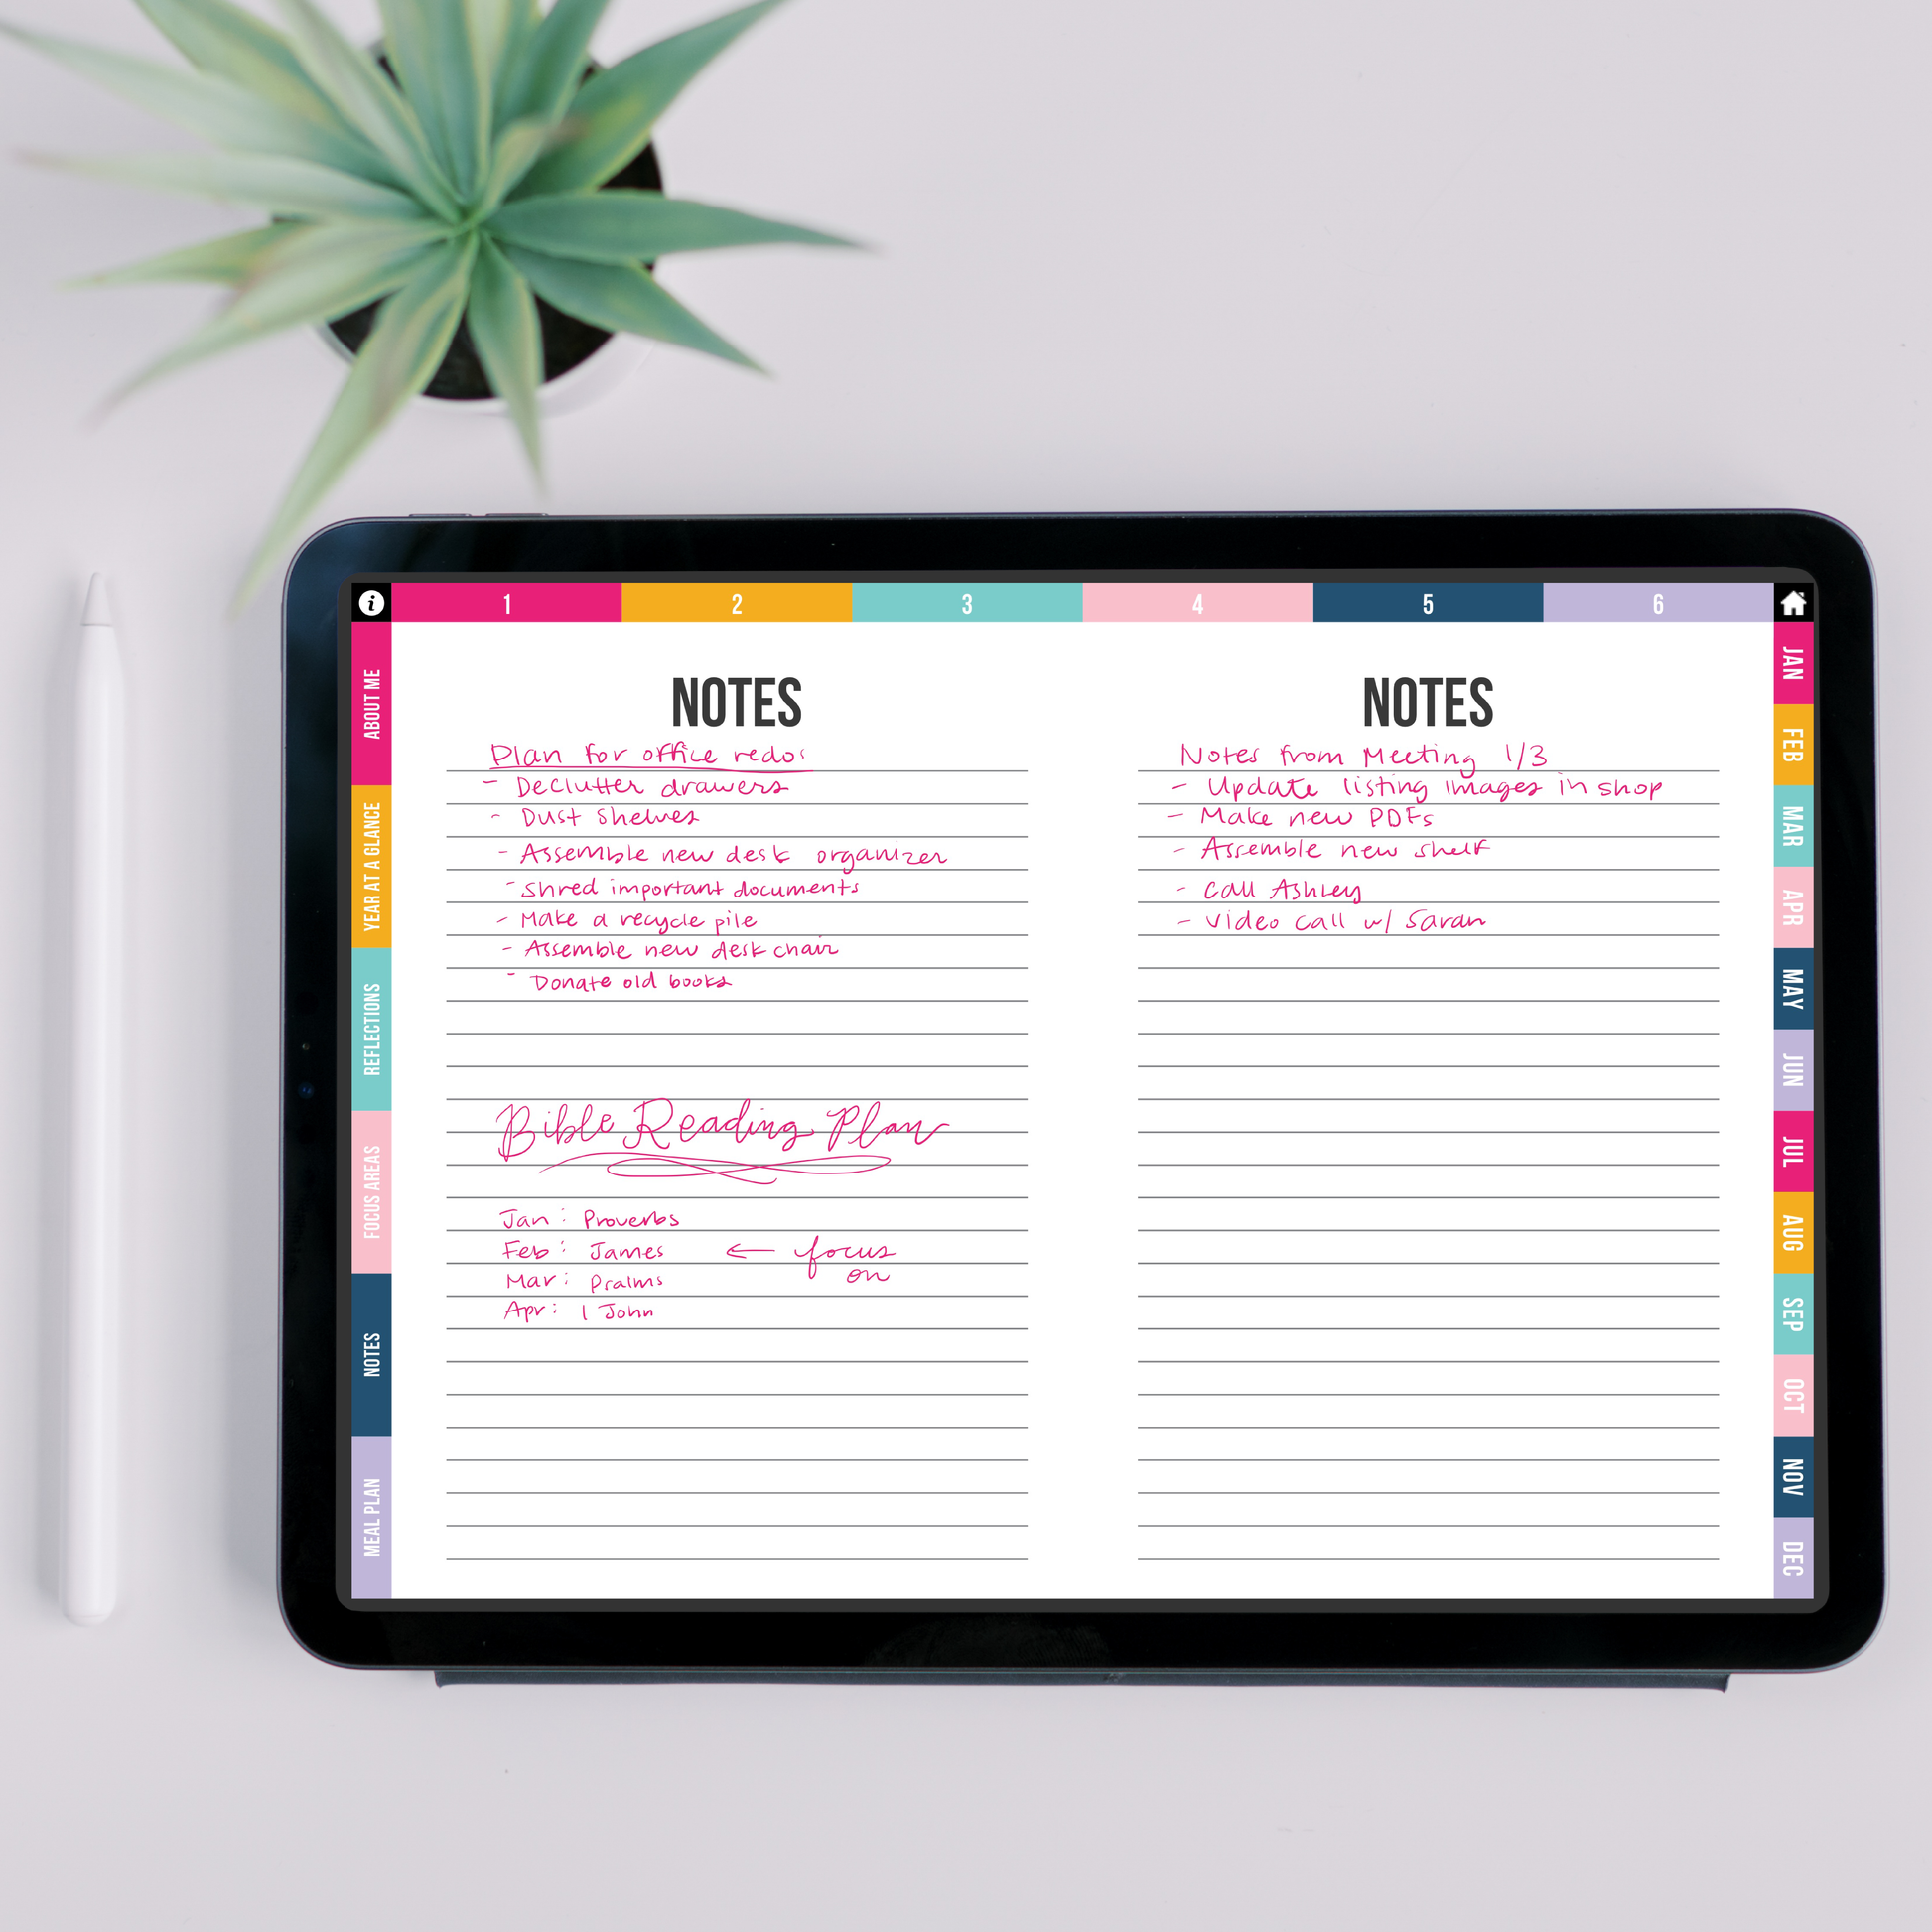 1 2 3 4 5 6
ABOUT ME
YEAR AT A GLANCE
REFLECTIONS
FOCUS AREAS
NOTES
MEAL PLAN
NOTES
Plan for office redo:
- Declutter drawers
- Dust Shelves
- Assemble new desk organizer
- Shred important documents
- Make a recycle pile
- Assemble new desk chair
- Donate old books
Bible Reading Plan
Jan : Proverbs
Feb : James ← focus
on
Mar : Psalms
Apr : 1 John
NOTES
Notes from Meeting 1/3
- Update listing images in shop
- Make new PDFs
- Assemble new shelf
- Call Ashley
- Video call w/ Sarah
JAN
FEB
MAR
APR
MAY
JUN
JUL
AUG
SEP
OCT
NOV
DEC